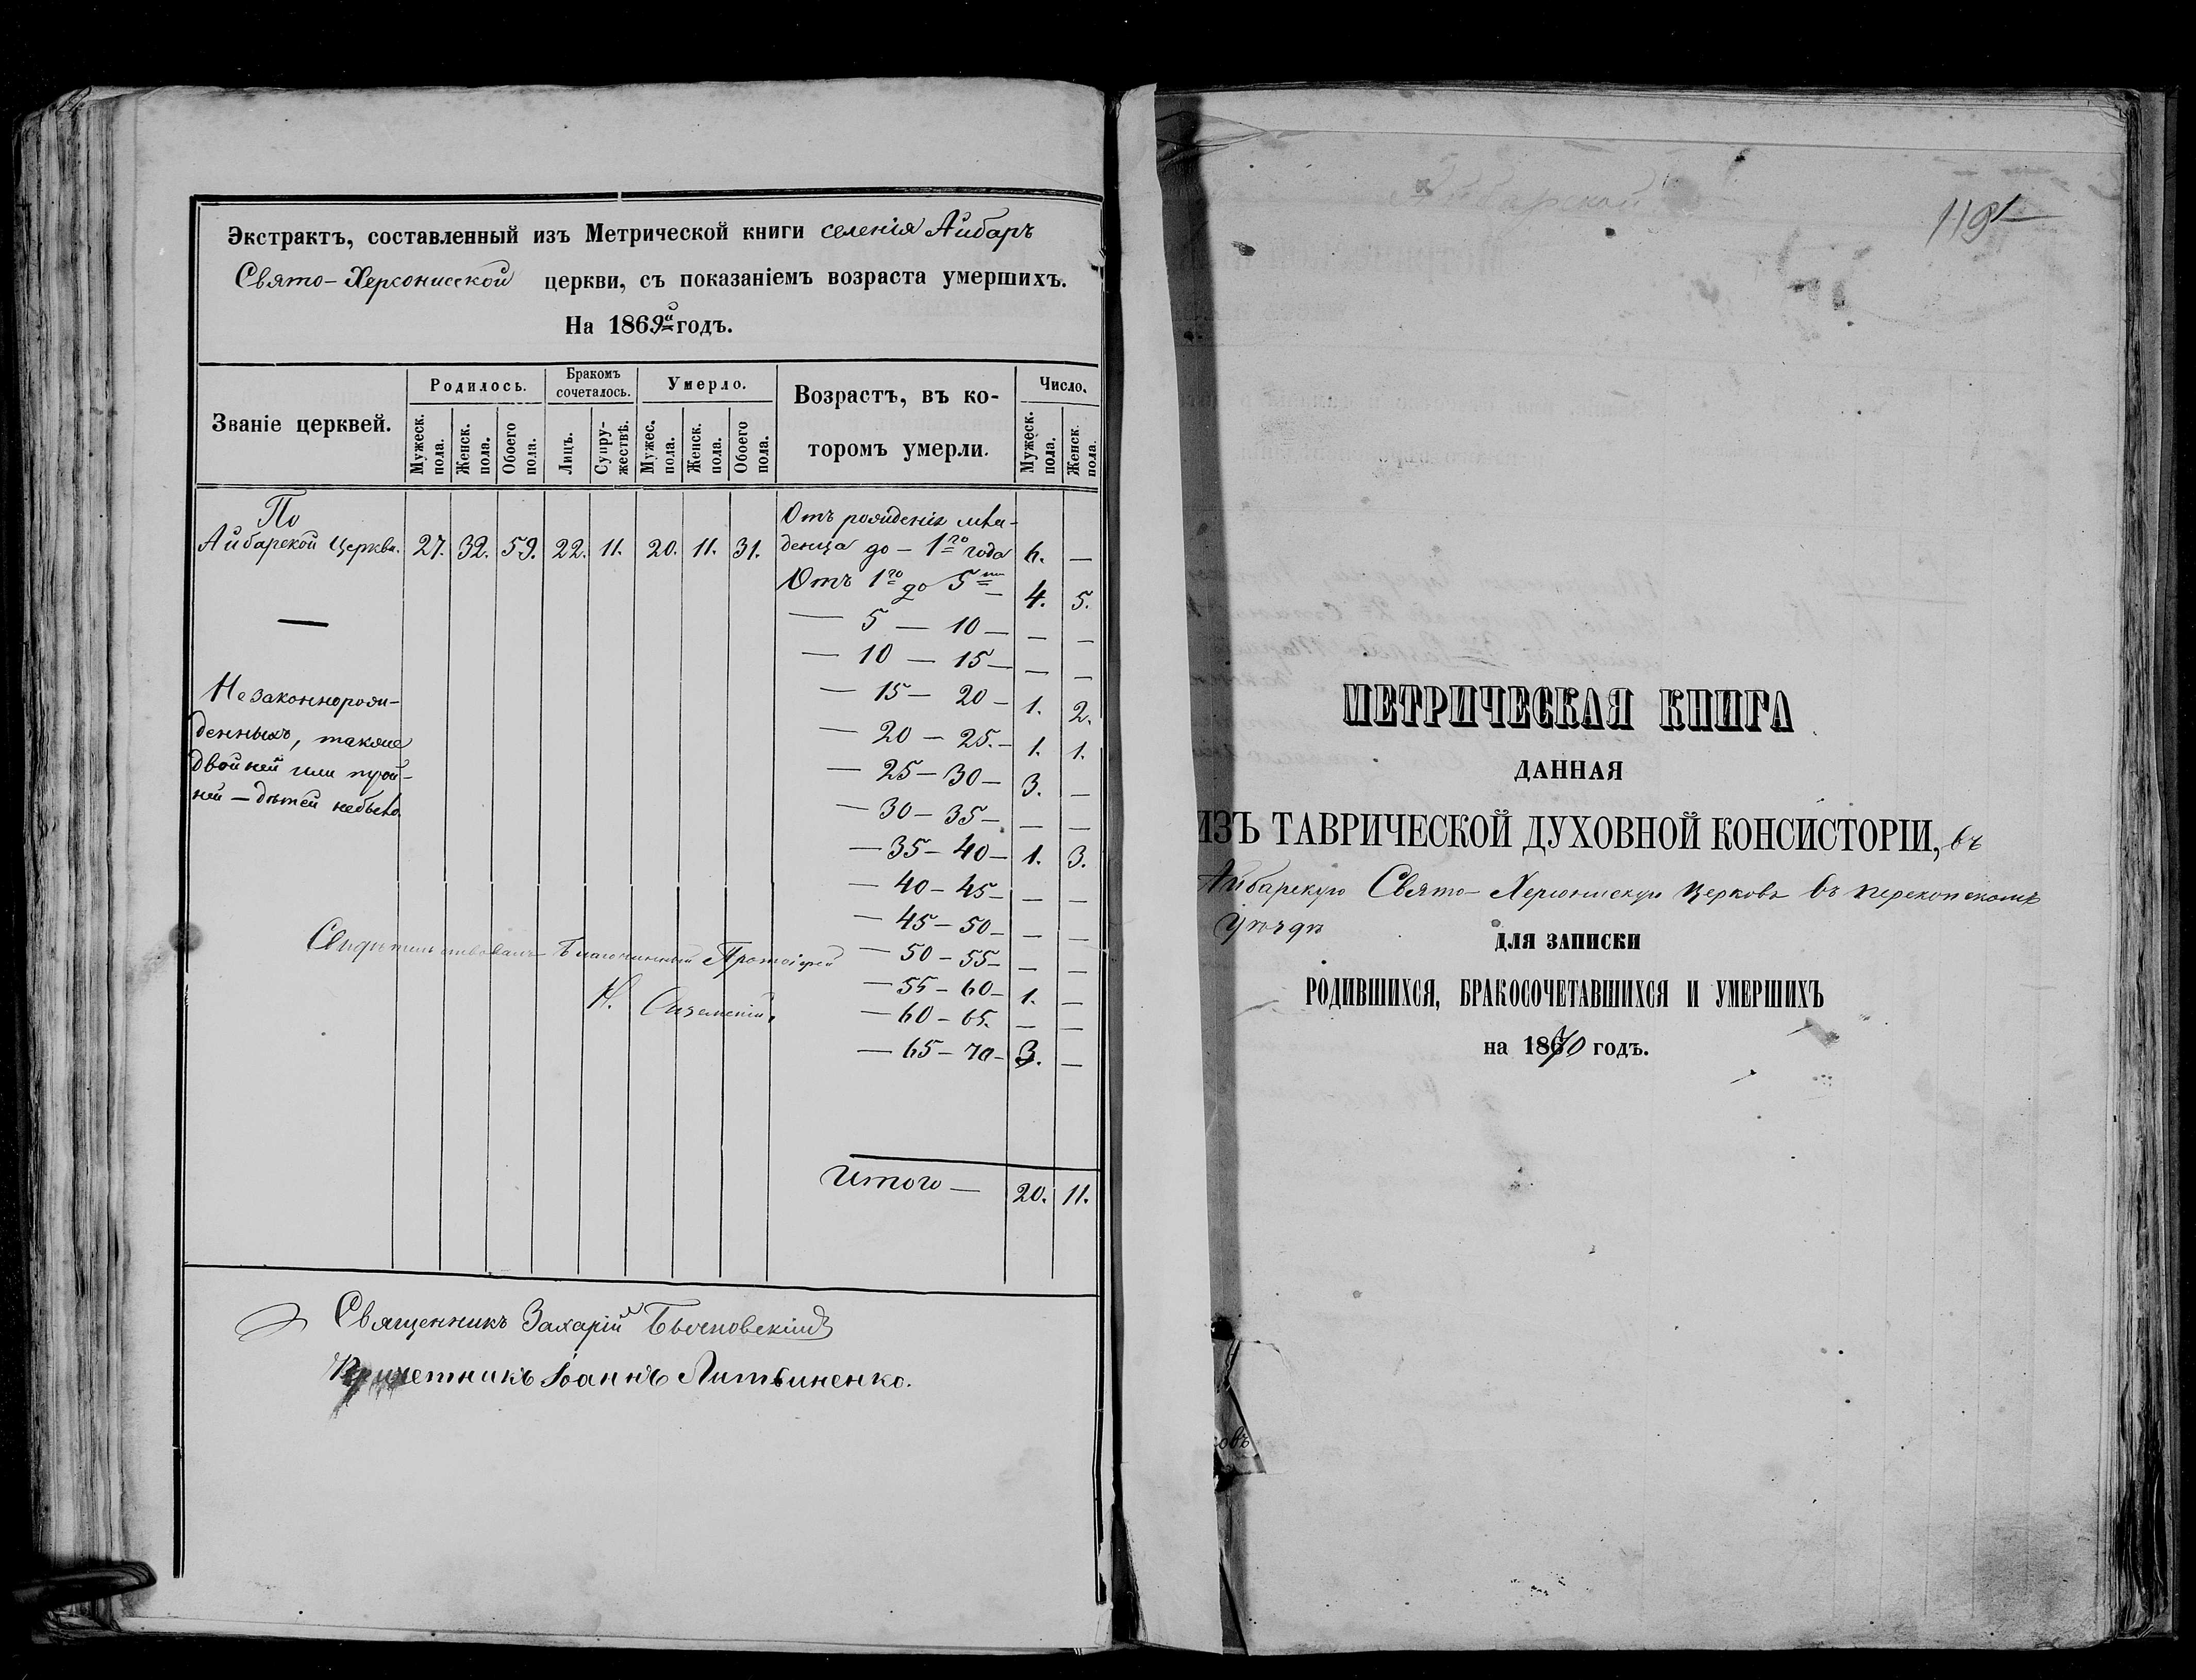 Экстрактъ, составленный изъ Метрической книги селенія Айбаръ
Свято-Херсонисской церкви, съ показаніемъ возраста умершихъ.
На 1869й годъ.
Званіе церквей.
Родилось.
Бракомъ сочеталось.
Умерло.
Возрастъ, въ ко-
торомъ умерли.
Число.
Мужеск. пола.
Женск. пола.
Обоего пола.
Лицъ.
Супру-жествъ.
Мужес. пола.
Женск. пола.
Обоего пола.
Мужеск. пола.
Женск. пола.
По
Айбарской Церкви. 27. 32. 59. 22. 11. 20. 11. 31.
Отъ рожденія мла-
денца до — 1го года 6. —
Отъ 1го до 5ти — 4. 5.
— 5 — 10 — — —
— 10 — 15 — — —
— 15 — 20 — 1. 2.
— 20 — 25. — 1. 1.
— 25 — 30 — 3. —
— 30 — 35 — — —
— 35 — 40 — 1. 3.
— 40 — 45 — — —
— 45 — 50 — — —
— 50 — 55 — — —
— 55 — 60 — 1. —
— 60 — 65. — —
— 65 — 70 — 3. —
Итого — 20. 11.
Незаконнорож-
денныхъ, также
двойней или трой-
ней — дѣтей небыло.
Свидѣтельствовалъ Благочинный Протоіерей
Священникъ Захарій
Причетникъ Іоаннъ Литвиненко.
Айбарской
119
МЕТРИЧЕСКАЯ КНИГА
ДАННАЯ
ИЗЪ ТАВРИЧЕСКОЙ ДУХОВНОЙ КОНСИСТОРІИ, въ
Айбарскую Свято-Херсонискую Церковь въ Перекопскомъ
Уѣздѣ
ДЛЯ ЗАПИСКИ
РОДИВШИХСЯ, БРАКОСОЧЕТАВШИХСЯ И УМЕРШИХЪ
на 1870 годъ.
овъ